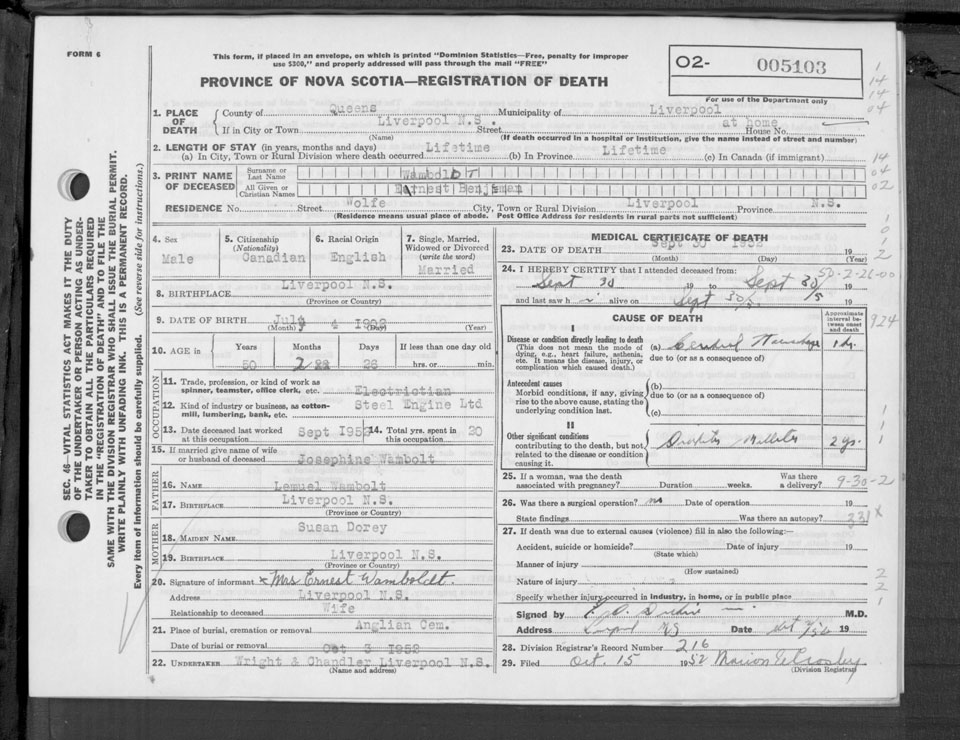 FORM 6
This form, if placed in an envelope, on which is printed "Dominion Statistics—Free, penalty for improper
use $300," and properly addressed will pass through the mail "FREE"
PROVINCE OF NOVA SCOTIA—REGISTRATION OF DEATH
O2- 005103
For use of the Department only
SEC. 46—VITAL STATISTICS ACT MAKES IT THE DUTY
OF THE UNDERTAKER OR PERSON ACTING AS UNDER-
TAKER TO OBTAIN ALL THE PARTICULARS REQUIRED
IN THE "REGISTRATION OF DEATH" AND TO FILE THE
SAME WITH THE DIVISION REGISTRAR WHO SHALL ISSUE THE BURIAL PERMIT.
WRITE PLAINLY WITH UNFADING INK. THIS IS A PERMANENT RECORD.
Every item of information should be carefully supplied. (See reverse side for instructions.)
1. PLACE OF DEATH
County of Queens Municipality of Liverpool
If in City or Town Liverpool N.S. Street at home House No.
(Name) (If death occurred in a hospital or institution, give the name instead of street and number)
2. LENGTH OF STAY (in years, months and days)
(a) In City, Town or Rural Division where death occurred Lifetime (b) In Province Lifetime (c) In Canada (if immigrant)
3. PRINT NAME OF DECEASED
Surname or Last Name WamboldT
All Given or Christian Names Ernest Benjiman
RESIDENCE No. Street Wolfe City, Town or Rural Division Liverpool Province N.S.
(Residence means usual place of abode. Post Office Address for residents in rural parts not sufficient)
4. Sex Male
5. Citizenship (Nationality) Canadian
6. Racial Origin English
7. Single, Married, Widowed or Divorced (write the word) Married
8. BIRTHPLACE Liverpool N.S.
(Province or Country)
9. DATE OF BIRTH July 4 1902
(Month) (Day) (Year)
10. AGE in Years Months Days If less than one day old
50 2 26 hrs. or min.
OCCUPATION
11. Trade, profession or kind of work as
spinner, teamster, office clerk, etc. Electrictian
12. Kind of industry or business, as cotton-
mill, lumbering, bank, etc. Steel Engine Ltd
13. Date deceased last worked
at this occupation Sept 1952
14. Total yrs. spent in
this occupation 20
15. If married give name of wife
or husband of deceased Josephine Wambolt
FATHER
16. NAME Lemuel Wambolt
17. BIRTHPLACE Liverpool N.S.
(Province or Country)
MOTHER
18. MAIDEN NAME Susan Dorey
19. BIRTHPLACE Liverpool N.S.
(Province or Country)
20. Signature of informant x Mrs Ernest Wamboldt.
Address Liverpool N.S.
Relationship to deceased Wife
21. Place of burial, cremation or removal Anglian Cem.
Date of burial or removal Oct 3 1952
22. UNDERTAKER Wright & Chandler Liverpool N.S.
(Name and address)
MEDICAL CERTIFICATE OF DEATH
23. DATE OF DEATH Sept 30 1952 19
(Month) (Day) (Year)
24. I HEREBY CERTIFY that I attended deceased from:
Sept 30 19 to Sept 30/5 19
and last saw h alive on Sept 30/5 19
CAUSE OF DEATH
Approximate interval between onset and death
I
Disease or condition directly leading to death
(This does not mean the mode of
dying, e.g., heart failure, asthenia,
etc. It means the disease, injury, or
complication which caused death.)
(a)
due to (or as a consequence of)
Antecedent causes
Morbid conditions, if any, giving
rise to the above cause, stating the
underlying condition last.
(b)
due to (or as a consequence of)
(c)
II
Other significant conditions
contributing to the death, but not
related to the disease or condition
causing it.
2 yrs.
25. If a woman, was the death
associated with pregnancy? Duration weeks. Was there a delivery?
9-30-2
26. Was there a surgical operation? no Date of operation 19
State findings Was there an autopsy?
331 x
27. If death was due to external causes (violence) fill in also the following:—
Accident, suicide or homicide? Date of injury 19
(State which)
Manner of injury
(How sustained)
Nature of injury
Specify whether injury occurred in industry, in home, or in public place
Signed by M.D.
Address Date 19
28. Division Registrar's Record Number 216
29. Filed Oct. 15 1952
(Division Registrar)
924